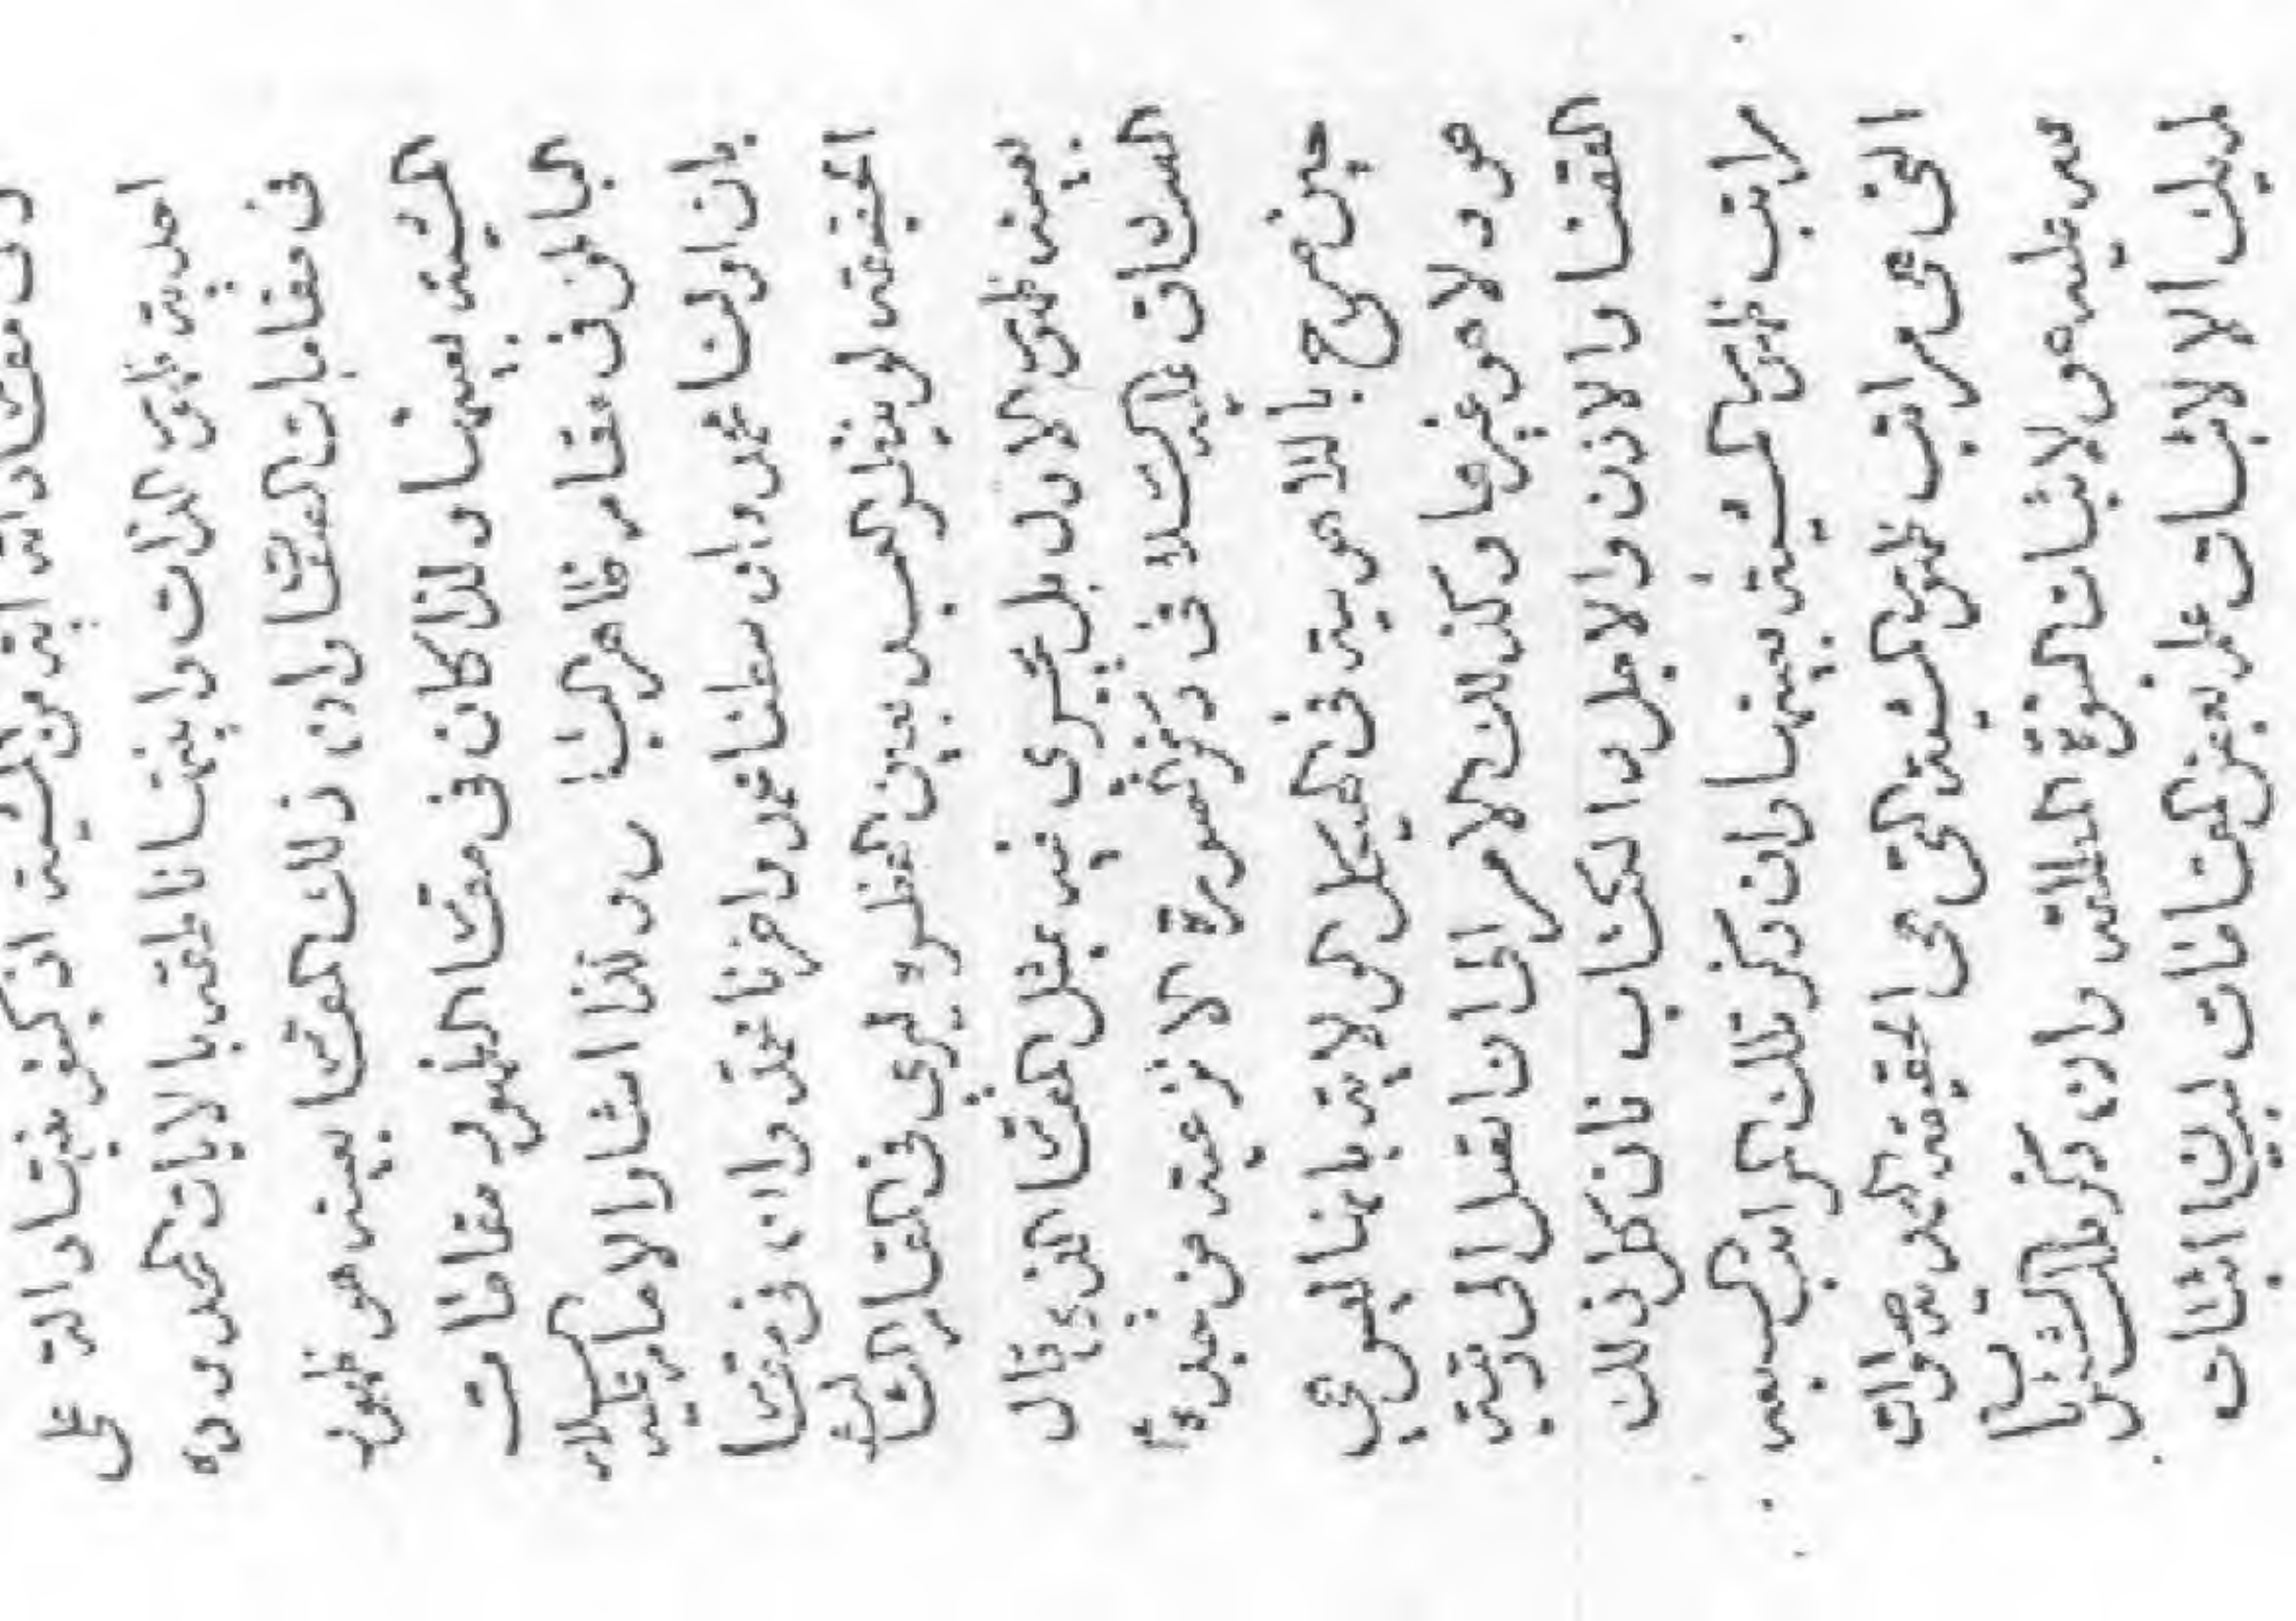 دانه اية من المشية اذ كيفيتها دالة على
احدية ظهور الذات وانيتها ناطقة بالايات المحدوده
فى مقامات القضا وان ذلك القضا بعينه هو ظهور
المشية بعينها ولذا كان فى مقام الظهور مقامات
فى مقام ظاهر ولذا اشار الامام عليه السلام
بان اولنا محمد واوسطنا محمد واخرنا محمد وان فى مقام
الحقيقة لو ينظر العبد بعين الفطرة ليرى فى القضاء الثالث
بعينه ظهور الاول بل يجرى فيه مثل القضا الذى قال
الصادق عليه السلام فى ذكر الصورة الانزعية من
حين صرح باللاهوتية فى الهيكل الولاية بانها ليس هي
هو ولا هو غيرها وكذلك الامر اذا الى رتبة
القضا والاذن والاجل والكتاب فان كل ذلك
مراتب ظهور المشية بعينها وان ذكر تلك المراتب السبعه
التى هى مراتب ظهور المشية التى هى الحقيقة المحمدية صلوات
عليه هو لاثبات وان ذكر تلك
لديك الا لاثبات بعض المقامات لدين اثبات